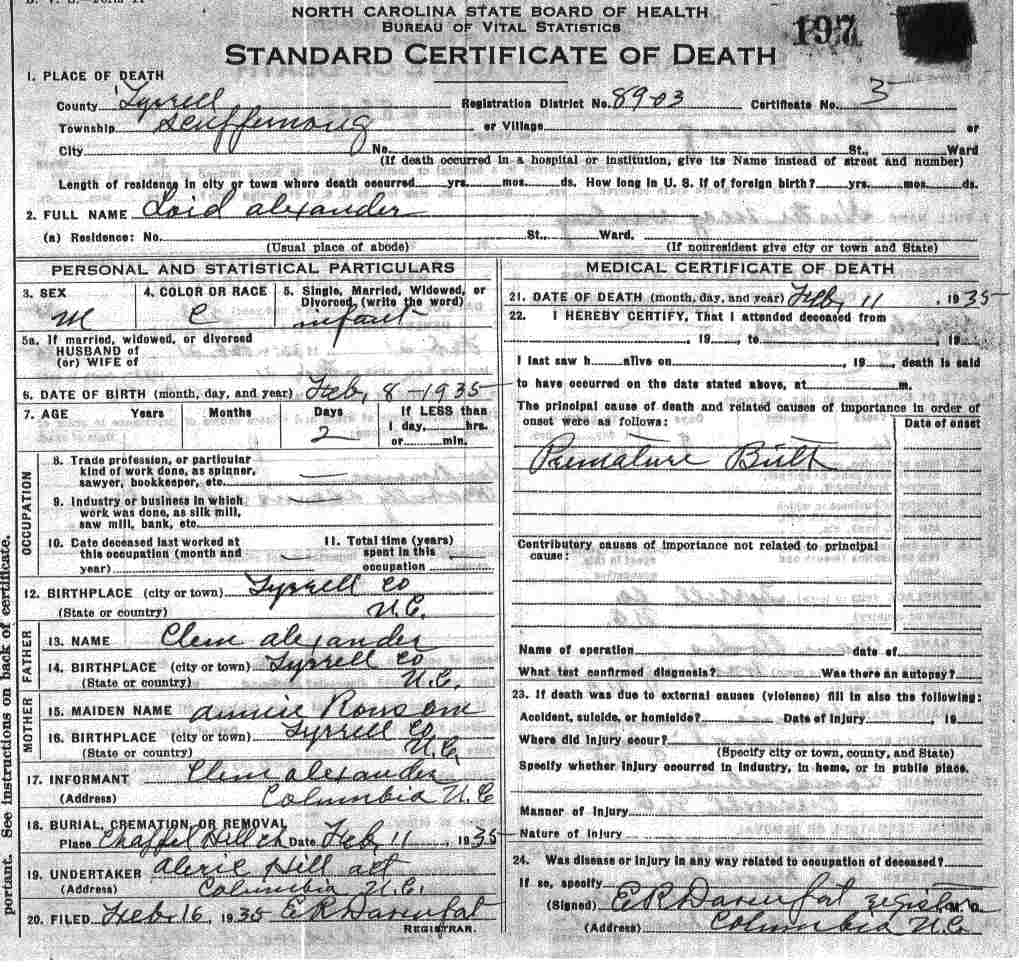 NORTH CAROLINA STATE BOARD OF HEALTH
BUREAU OF VITAL STATISTICS
197
STANDARD CERTIFICATE OF DEATH
1. PLACE OF DEATH
County Tyrrell Registration District No. 8903 Certificate No. 3
Township Scuffernong or Village or
City No. St., Ward
(If death occurred in a hospital or institution, give its Name instead of street and number)
Length of residence in city or town where death occurred yrs. mos. ds. How long in U. S. if of foreign birth? yrs. mos. ds.
2. FULL NAME Loid alexander
(a) Residence: No. St., Ward.
(Usual place of abode) (If nonresident give city or town and State)
PERSONAL AND STATISTICAL PARTICULARS
3. SEX 4. COLOR OR RACE 5. Single, Married, Widowed, or Divorced, (write the word)
M C infant
5a. If married, widowed, or divorced
HUSBAND of
(or) WIFE of
6. DATE OF BIRTH (month, day, and year) Feb, 8-1935
7. AGE Years Months Days If LESS than
1 day, hrs.
2 or min.
OCCUPATION
8. Trade profession, or particular
kind of work done, as spinner,
sawyer, bookkeeper, etc.
9. Industry or business in which
work was done, as silk mill,
saw mill, bank, etc.
10. Date deceased last worked at
this occupation (month and
year)
11. Total time (years)
spent in this
occupation
12. BIRTHPLACE (city or town) Tyrrell Co
(State or country) N.C.
FATHER
13. NAME Clem alexander
14. BIRTHPLACE (city or town) Tyrrell Co
(State or country) N.C.
MOTHER
15. MAIDEN NAME annie Ronsom
16. BIRTHPLACE (city or town) Tyrrell Co
(State or country) N.C.
17. INFORMANT Clem alexander
(Address) Columbia N.C
18. BURIAL, CREMATION, OR REMOVAL
Place Chappel Hill ch Date Feb, 11, 1935
19. UNDERTAKER Hill
(Address) Columbia N.C.
20. FILED Feb. 16, 1935 E R Davenport
REGISTRAR.
MEDICAL CERTIFICATE OF DEATH
21. DATE OF DEATH (month, day, and year) Feb, 11, 1935
22. I HEREBY CERTIFY, That I attended deceased from
, 19 , to , 19
I last saw h alive on , 19 , death is said
to have occurred on the date stated above, at m.
The principal cause of death and related causes of importance in order of
onset were as follows: Date of onset
Premature Birth
Contributory causes of importance not related to principal
cause:
Name of operation date of
What test confirmed diagnosis? Was there an autopsy?
23. If death was due to external causes (violence) fill in also the following:
Accident, suicide, or homicide? Date of Injury , 19
Where did injury occur?
(Specify city or town, county, and State)
Specify whether injury occurred in industry, in home, or in public place.
Manner of Injury
Nature of Injury
24. Was disease or injury in any way related to occupation of deceased?
If so, specify
(Signed) E R Davenport registrar M. D.
(Address) Columbia N.C.
portant. See instructions on back of certificate.